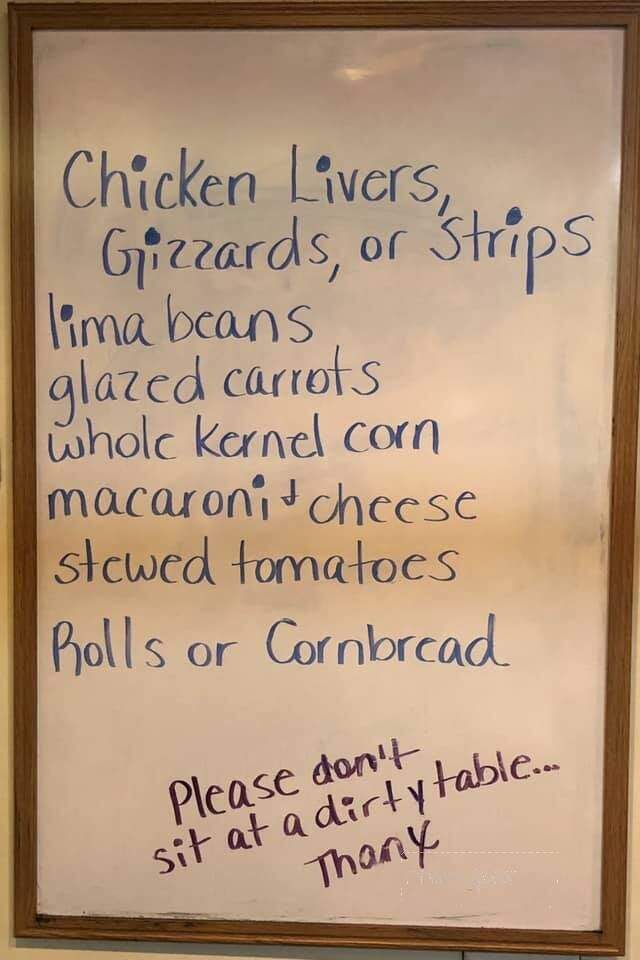 Chicken Livers,
Gizzards, or Strips
lima beans
glazed carrots
whole kernel corn
macaroni & cheese
stewed tomatoes
Rolls or Cornbread
Please don't
sit at a dirty table...
Thank